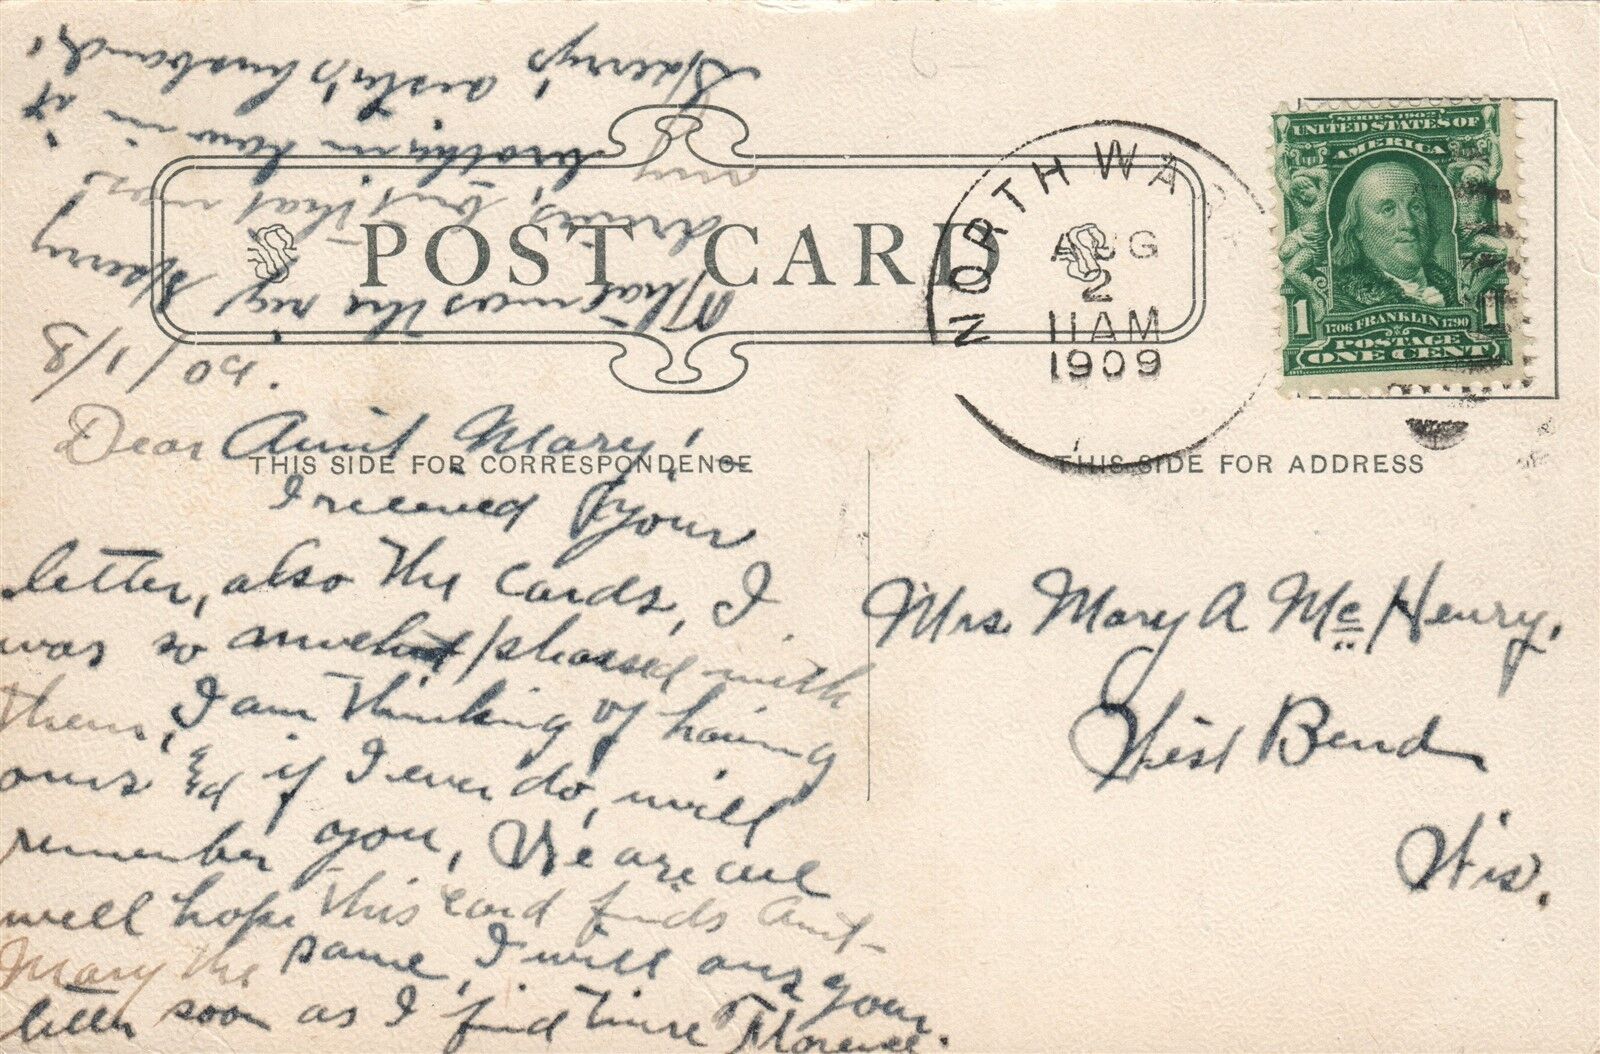 POST CARD
THIS SIDE FOR CORRESPONDENCE
THIS SIDE FOR ADDRESS
NORTHWA
AUG
2
11 AM
1909
SERIES 1902
UNITED STATES OF
AMERICA
1 1
1706 FRANKLIN 1790
POSTAGE
ONE CENT
8/1/09.
Dear Aunt Mary,
I received your
letter, also the cards, I
was so pleased with
them, I am thinking of having
ours and if I ever do, will
remember you, We are all
well hope this card finds Aunt
Mary the same, I will ans your
letter soon as I find time Florence.
That was the rig Harry
drives, but that was
my brother in law in it
Harry's sister's husband.
Mrs. Mary A McHenry,
West Bend
Wis.